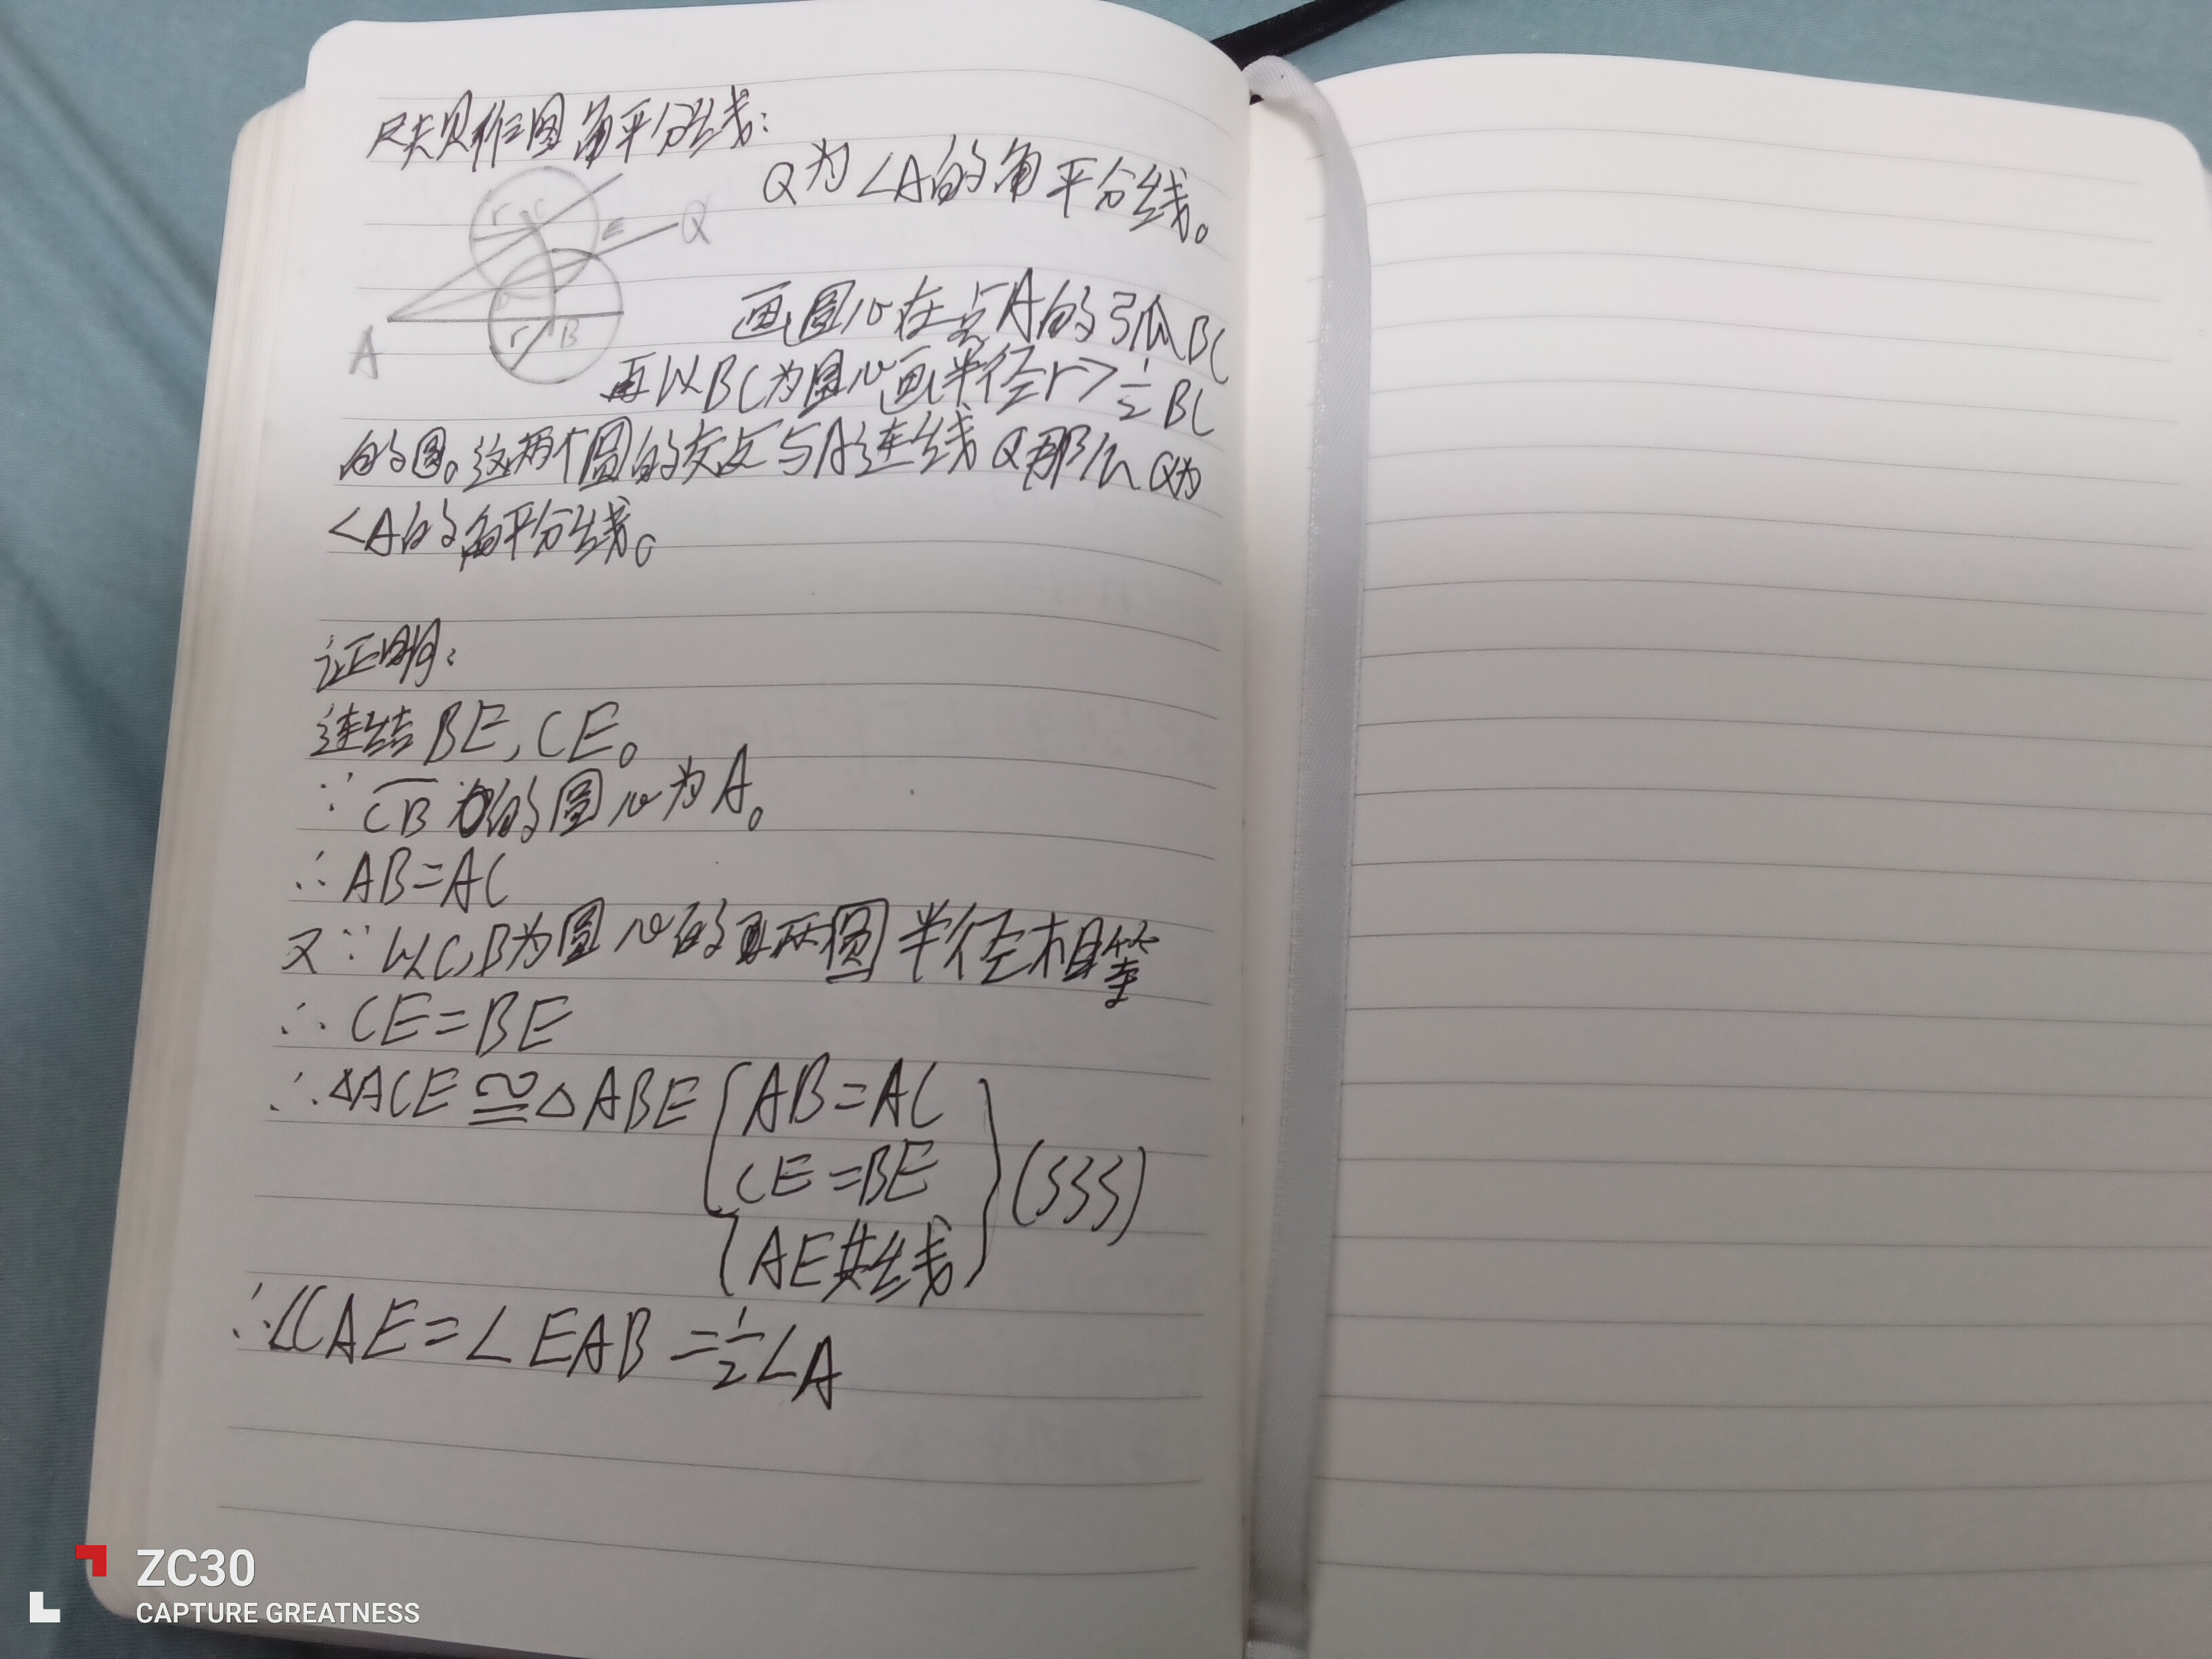 尺规作图角平分线:
Q为∠A的角平分线。
r C
E Q
A r B
画圆心在点A的弧BC
再以BC为圆心画半径r>½BC
的圆。这两个圆的交点与A连线Q那么Q为
∠A的角平分线。
证明:
连结BE,CE。
∵ C͡B的圆心为A。
∴AB=AC
又∵以C,B为圆心的两圆半径相等
∴CE=BE
∴△ACE≌△ABE { AB=AC
CE=BE } (SSS)
AE共线
∴∠CAE=∠EAB=½∠A
ZC30
CAPTURE GREATNESS